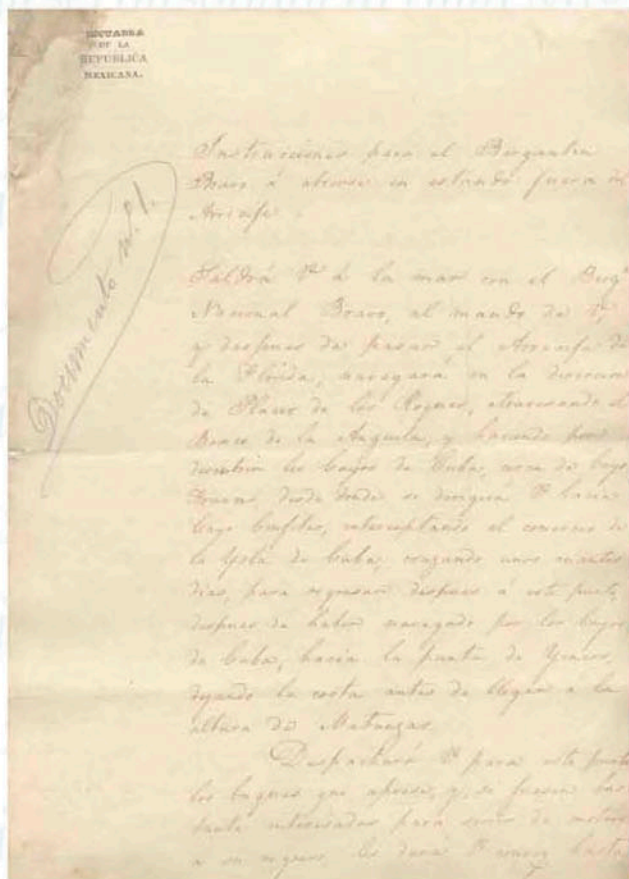 ESCUADRA
DE LA
REPUBLICA
MEXICANA.
Documento n. 1.
Instrucciones para el Bergantin
Bravo á en estando fuera del
Arrecife.
Saldrá Vd. á la mar con el Bergn
Nacional Bravo, al mando de V,
y despues de pasar el Arrecife de
la Florida, navegará en la direccion
de Placer de los Roques, atravesando el
Banco de la Anguila, y haciendo por
descubrir los Cayos de Cuba, cerca de Cayo
desde donde se dirigirá V. hacia
Cayo Confites, interceptando el comercio de
la Ysla de Cuba, cruzando unos cuantos
dias, para regresar despues á este punto,
despues de haber navegado por los Cayos
de Cuba, hacia la punta de Ycacos,
dejando la costa antes de llegar a la
altura de Matanzas.
Despachará V. para este punto
los buques que aprese, y, si fuesen bas
tante interesados para servir de motivo
a su regreso, les dará V. hasta